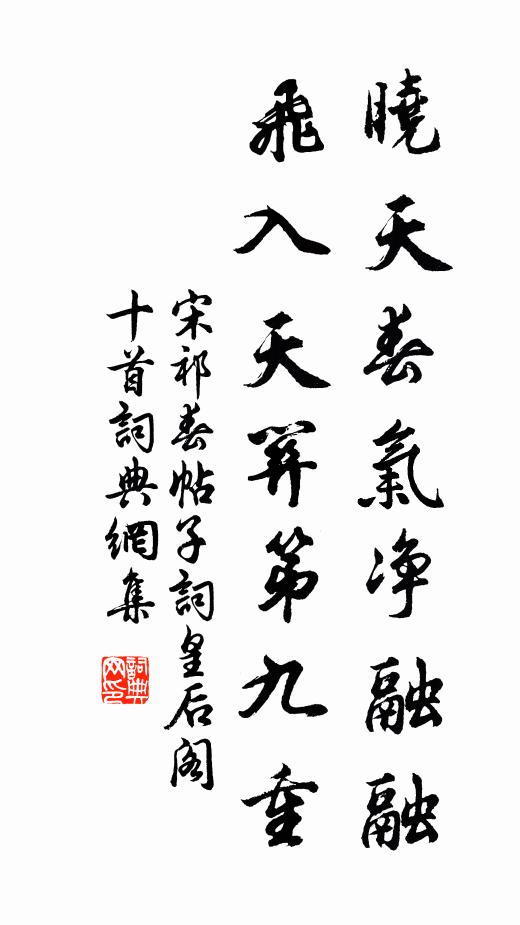 曉天春氣净融融
飛入天關第九重
宋祁春帖子詞皇后閣
十首詞典網集
詞典网印